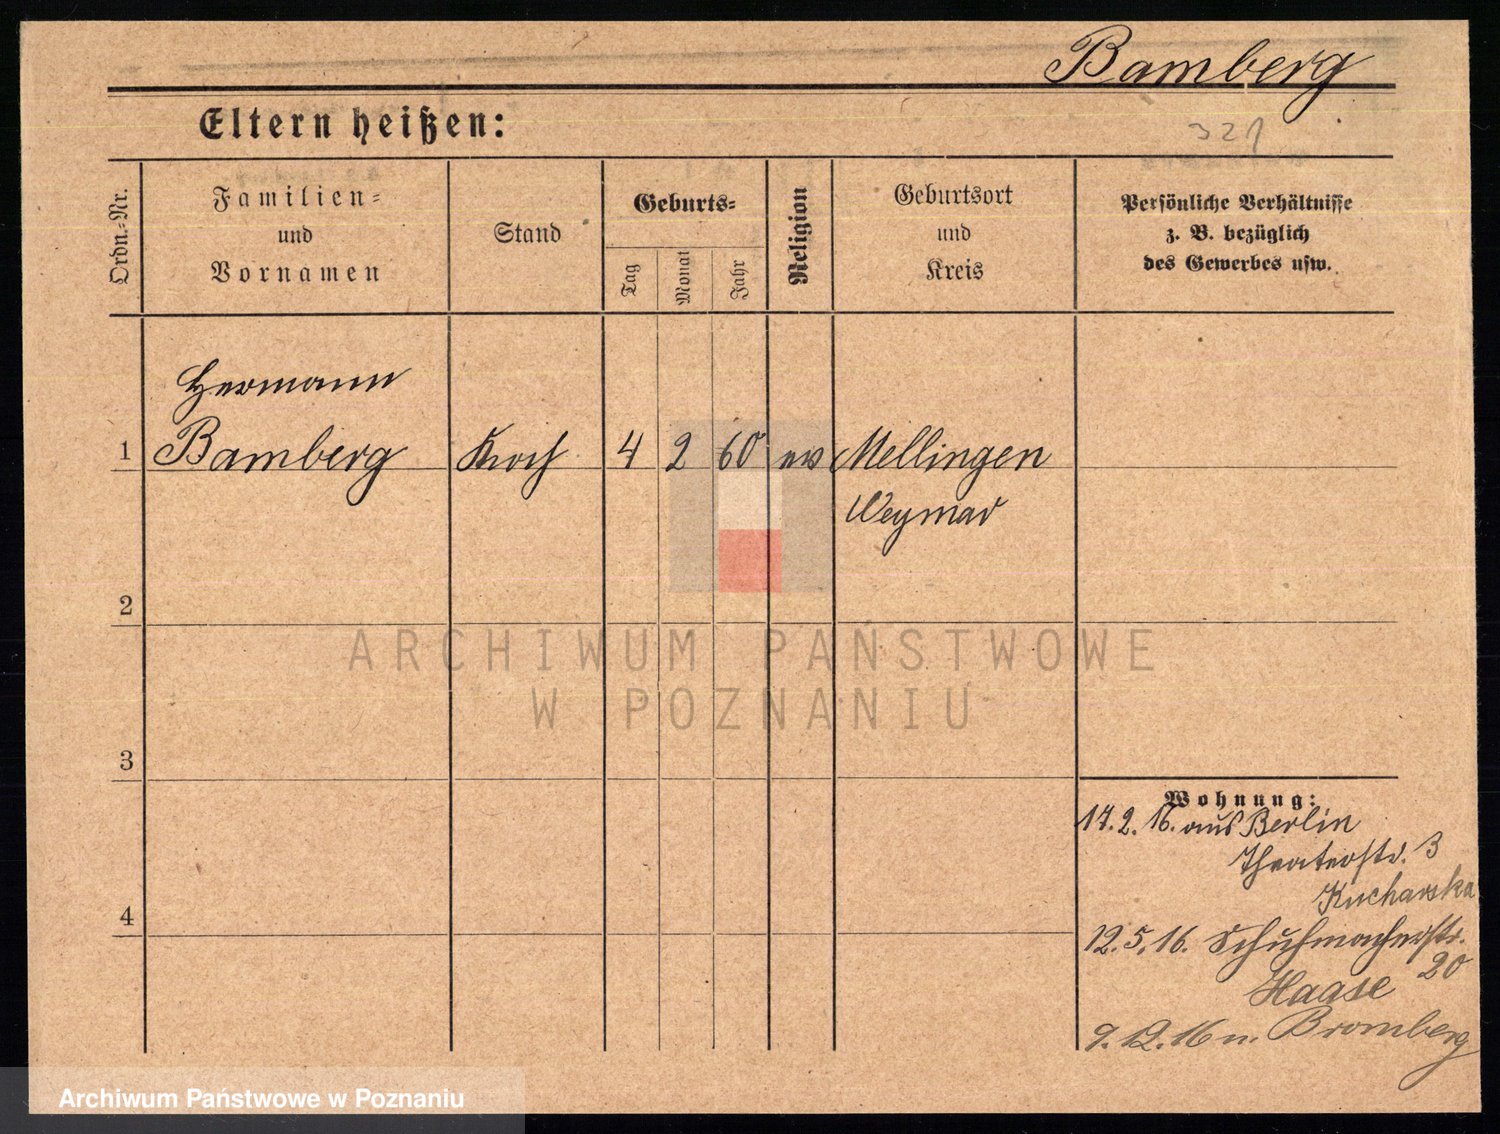 Bamberg
Eltern heißen:
321
Ordn.-Nr.
Familien-
und
Vornamen
Stand
Geburts-
Tag
Monat
Jahr
Religion
Geburtsort
und
Kreis
Persönliche Verhältnisse
z. B. bezüglich
des Gewerbes usw.
Hermann
1 Bamberg Koch 4 2 60 ev Mellingen
Weymar
2
ARCHIWUM PAŃSTWOWE
W POZNANIU
3
Wohnung:
17.2.16. aus Berlin
Theaterstr. 3
Kucharska
4
12.5.16. Schuhmacherstr.
20
Haase
9.12.16 n. Bromberg
Archiwum Państwowe w Poznaniu